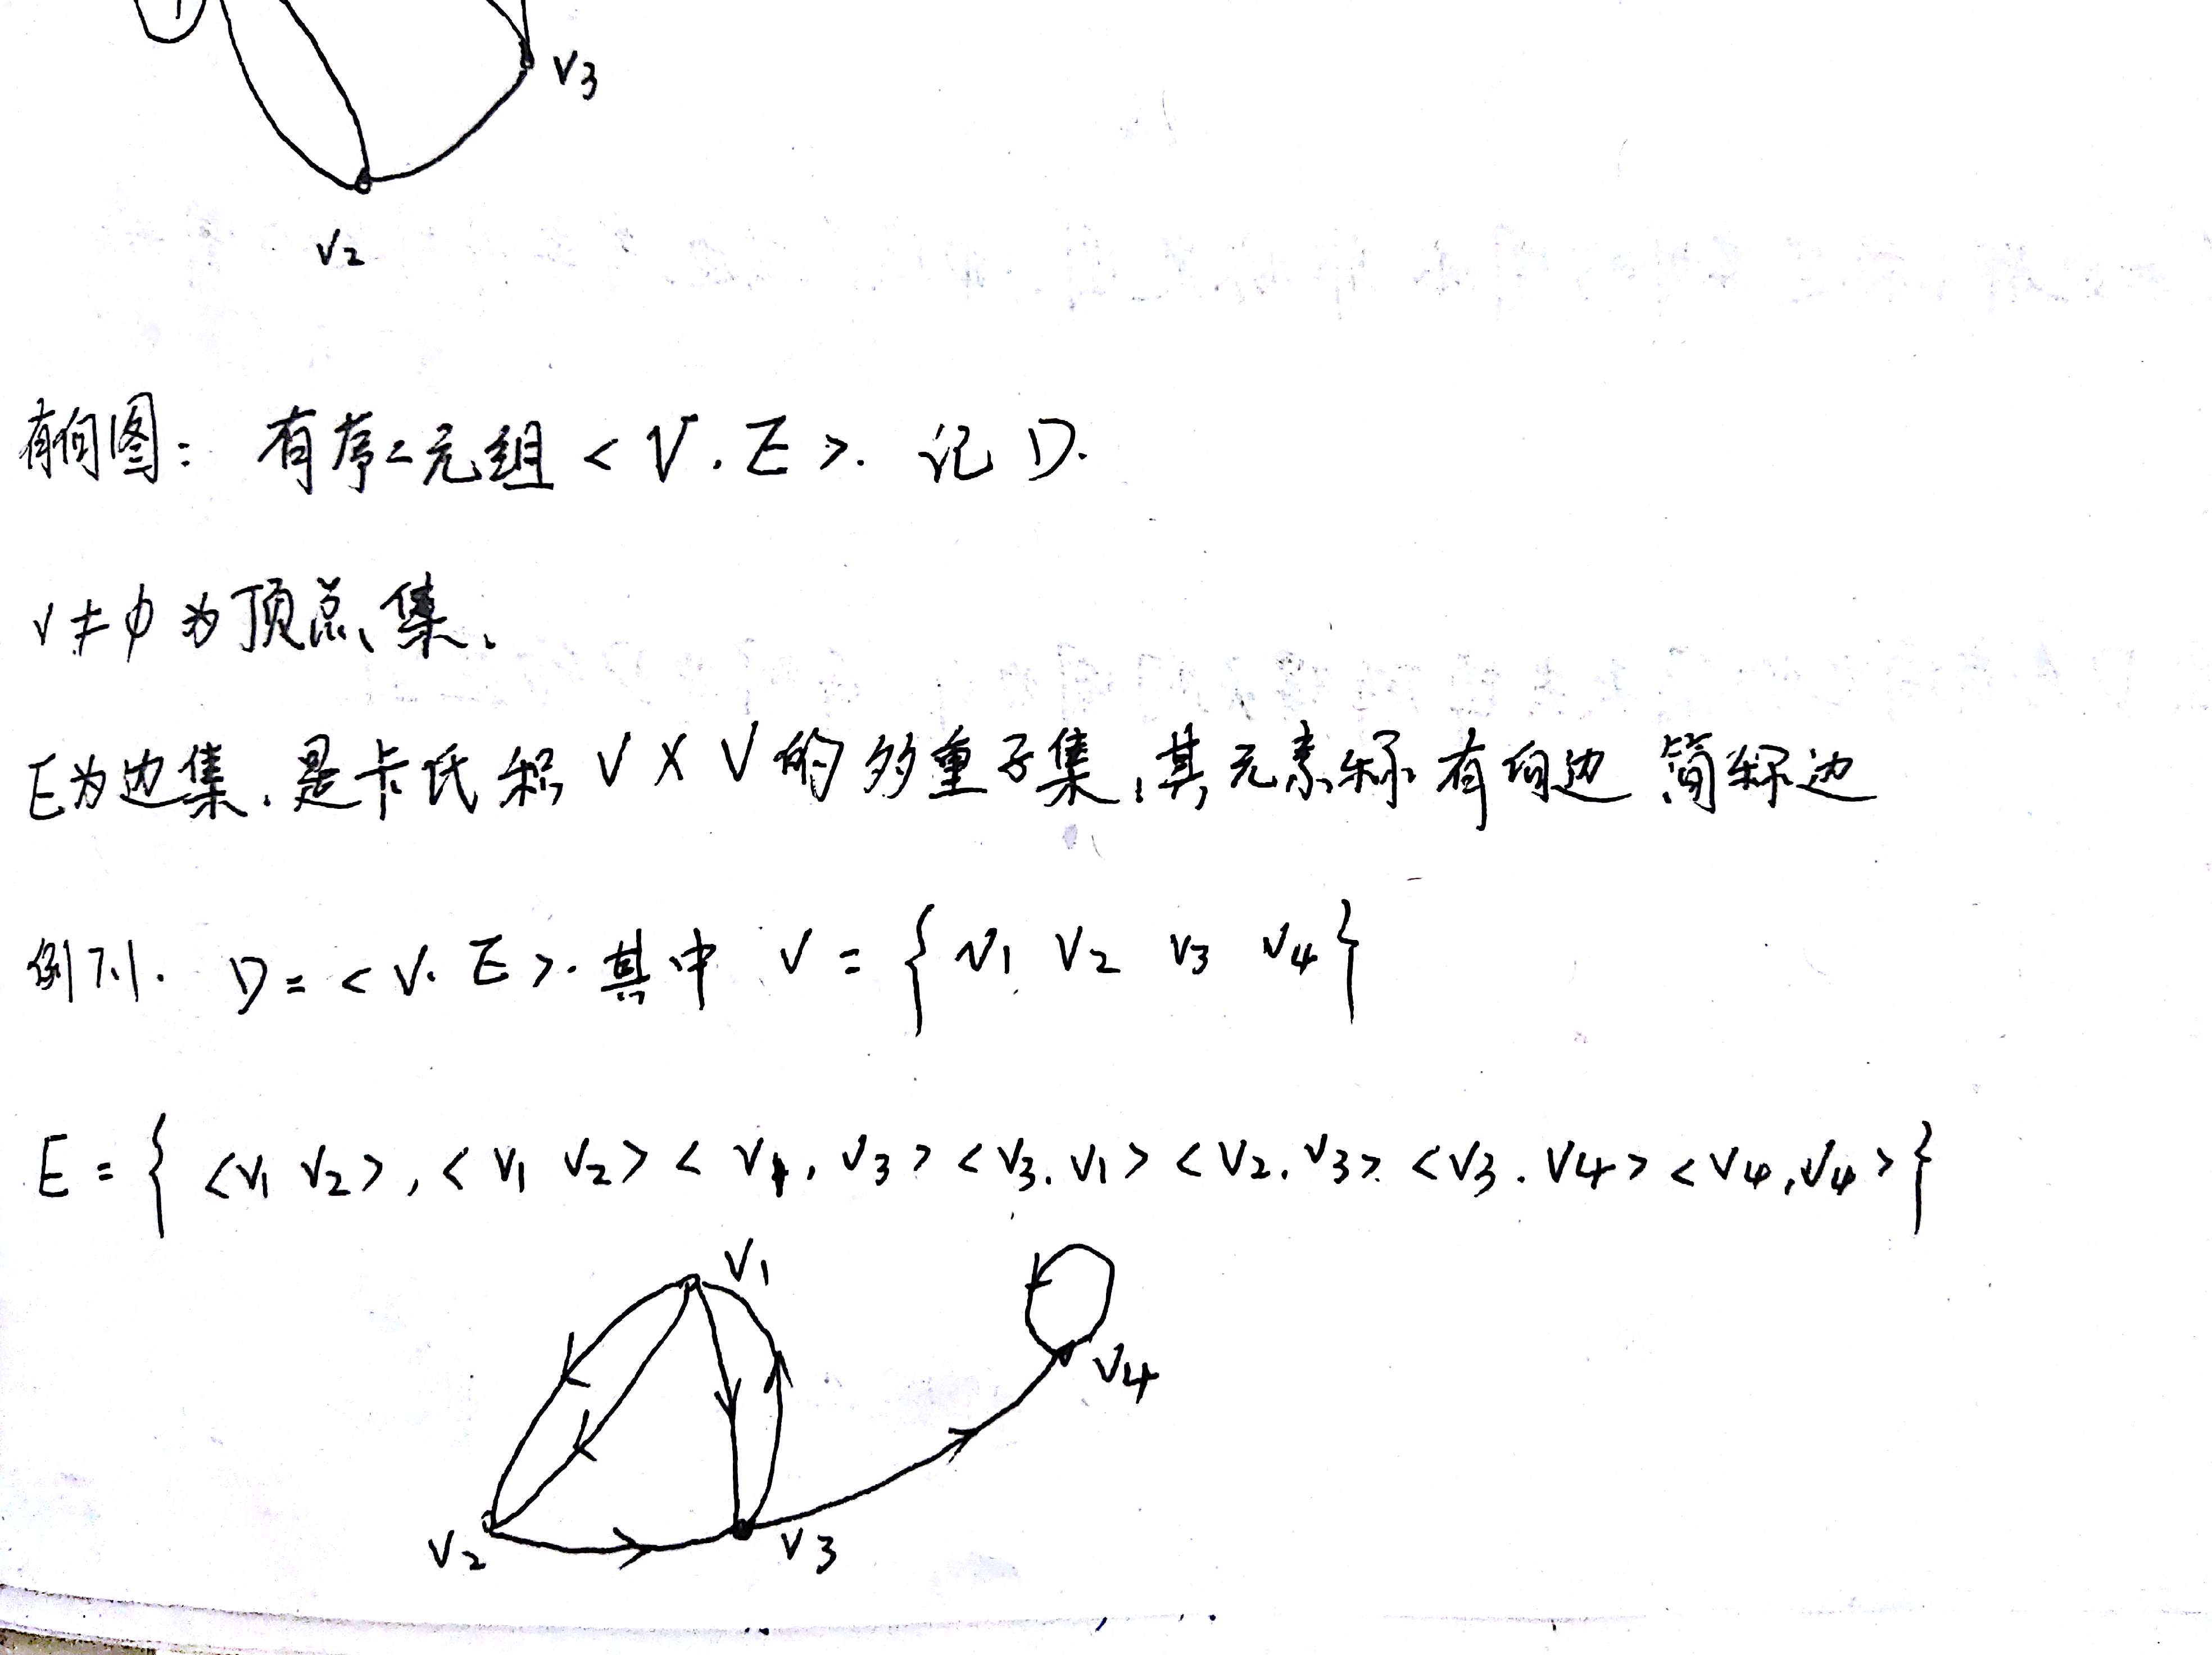 v3
v2
有向图: 有序二元组 < V. E >. 记 D.
V ≠ ϕ 为顶点集.
E为边集. 是卡氏积 V X V 的多重子集, 其元素称有向边 简称边
例7.1. D = < V. E >. 其中 V = { v1 v2 v3 v4 }
E = { <v1 v2>, < v1 v2> < v1, v3 > <v3. v1> <v2. v3> <v3. v4> <v4, v4> }
v1
v4
v2 v3